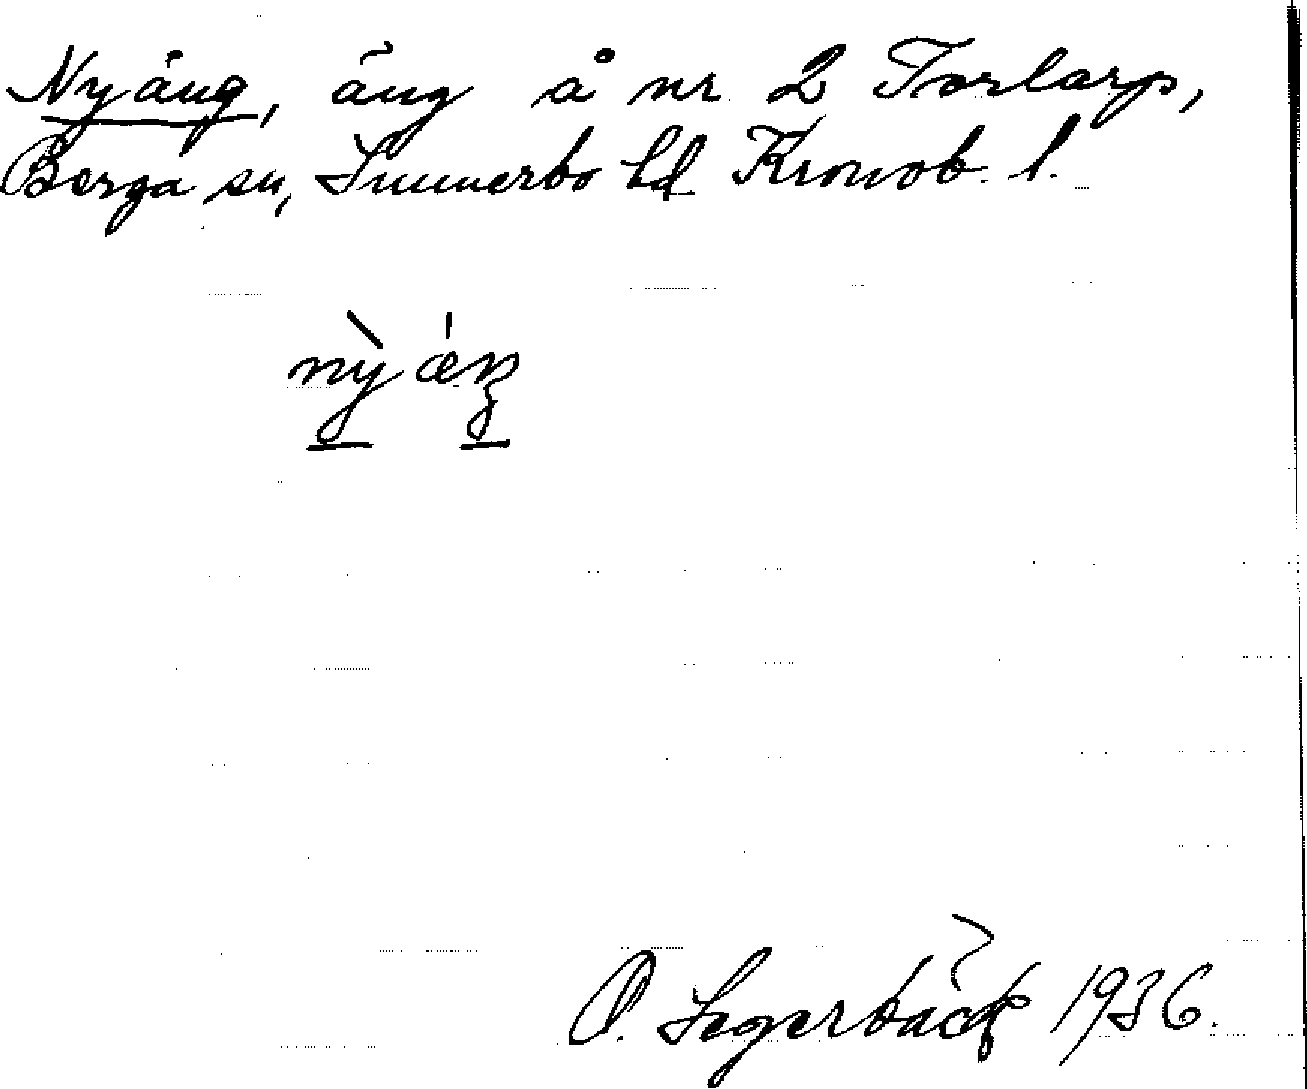 Nyäng, äng å nr 2 Torlarp,
Berga sn, Sunnerbo hd Kronob. l.
nỳ ǽŋ
O. Segerbäck 1936.